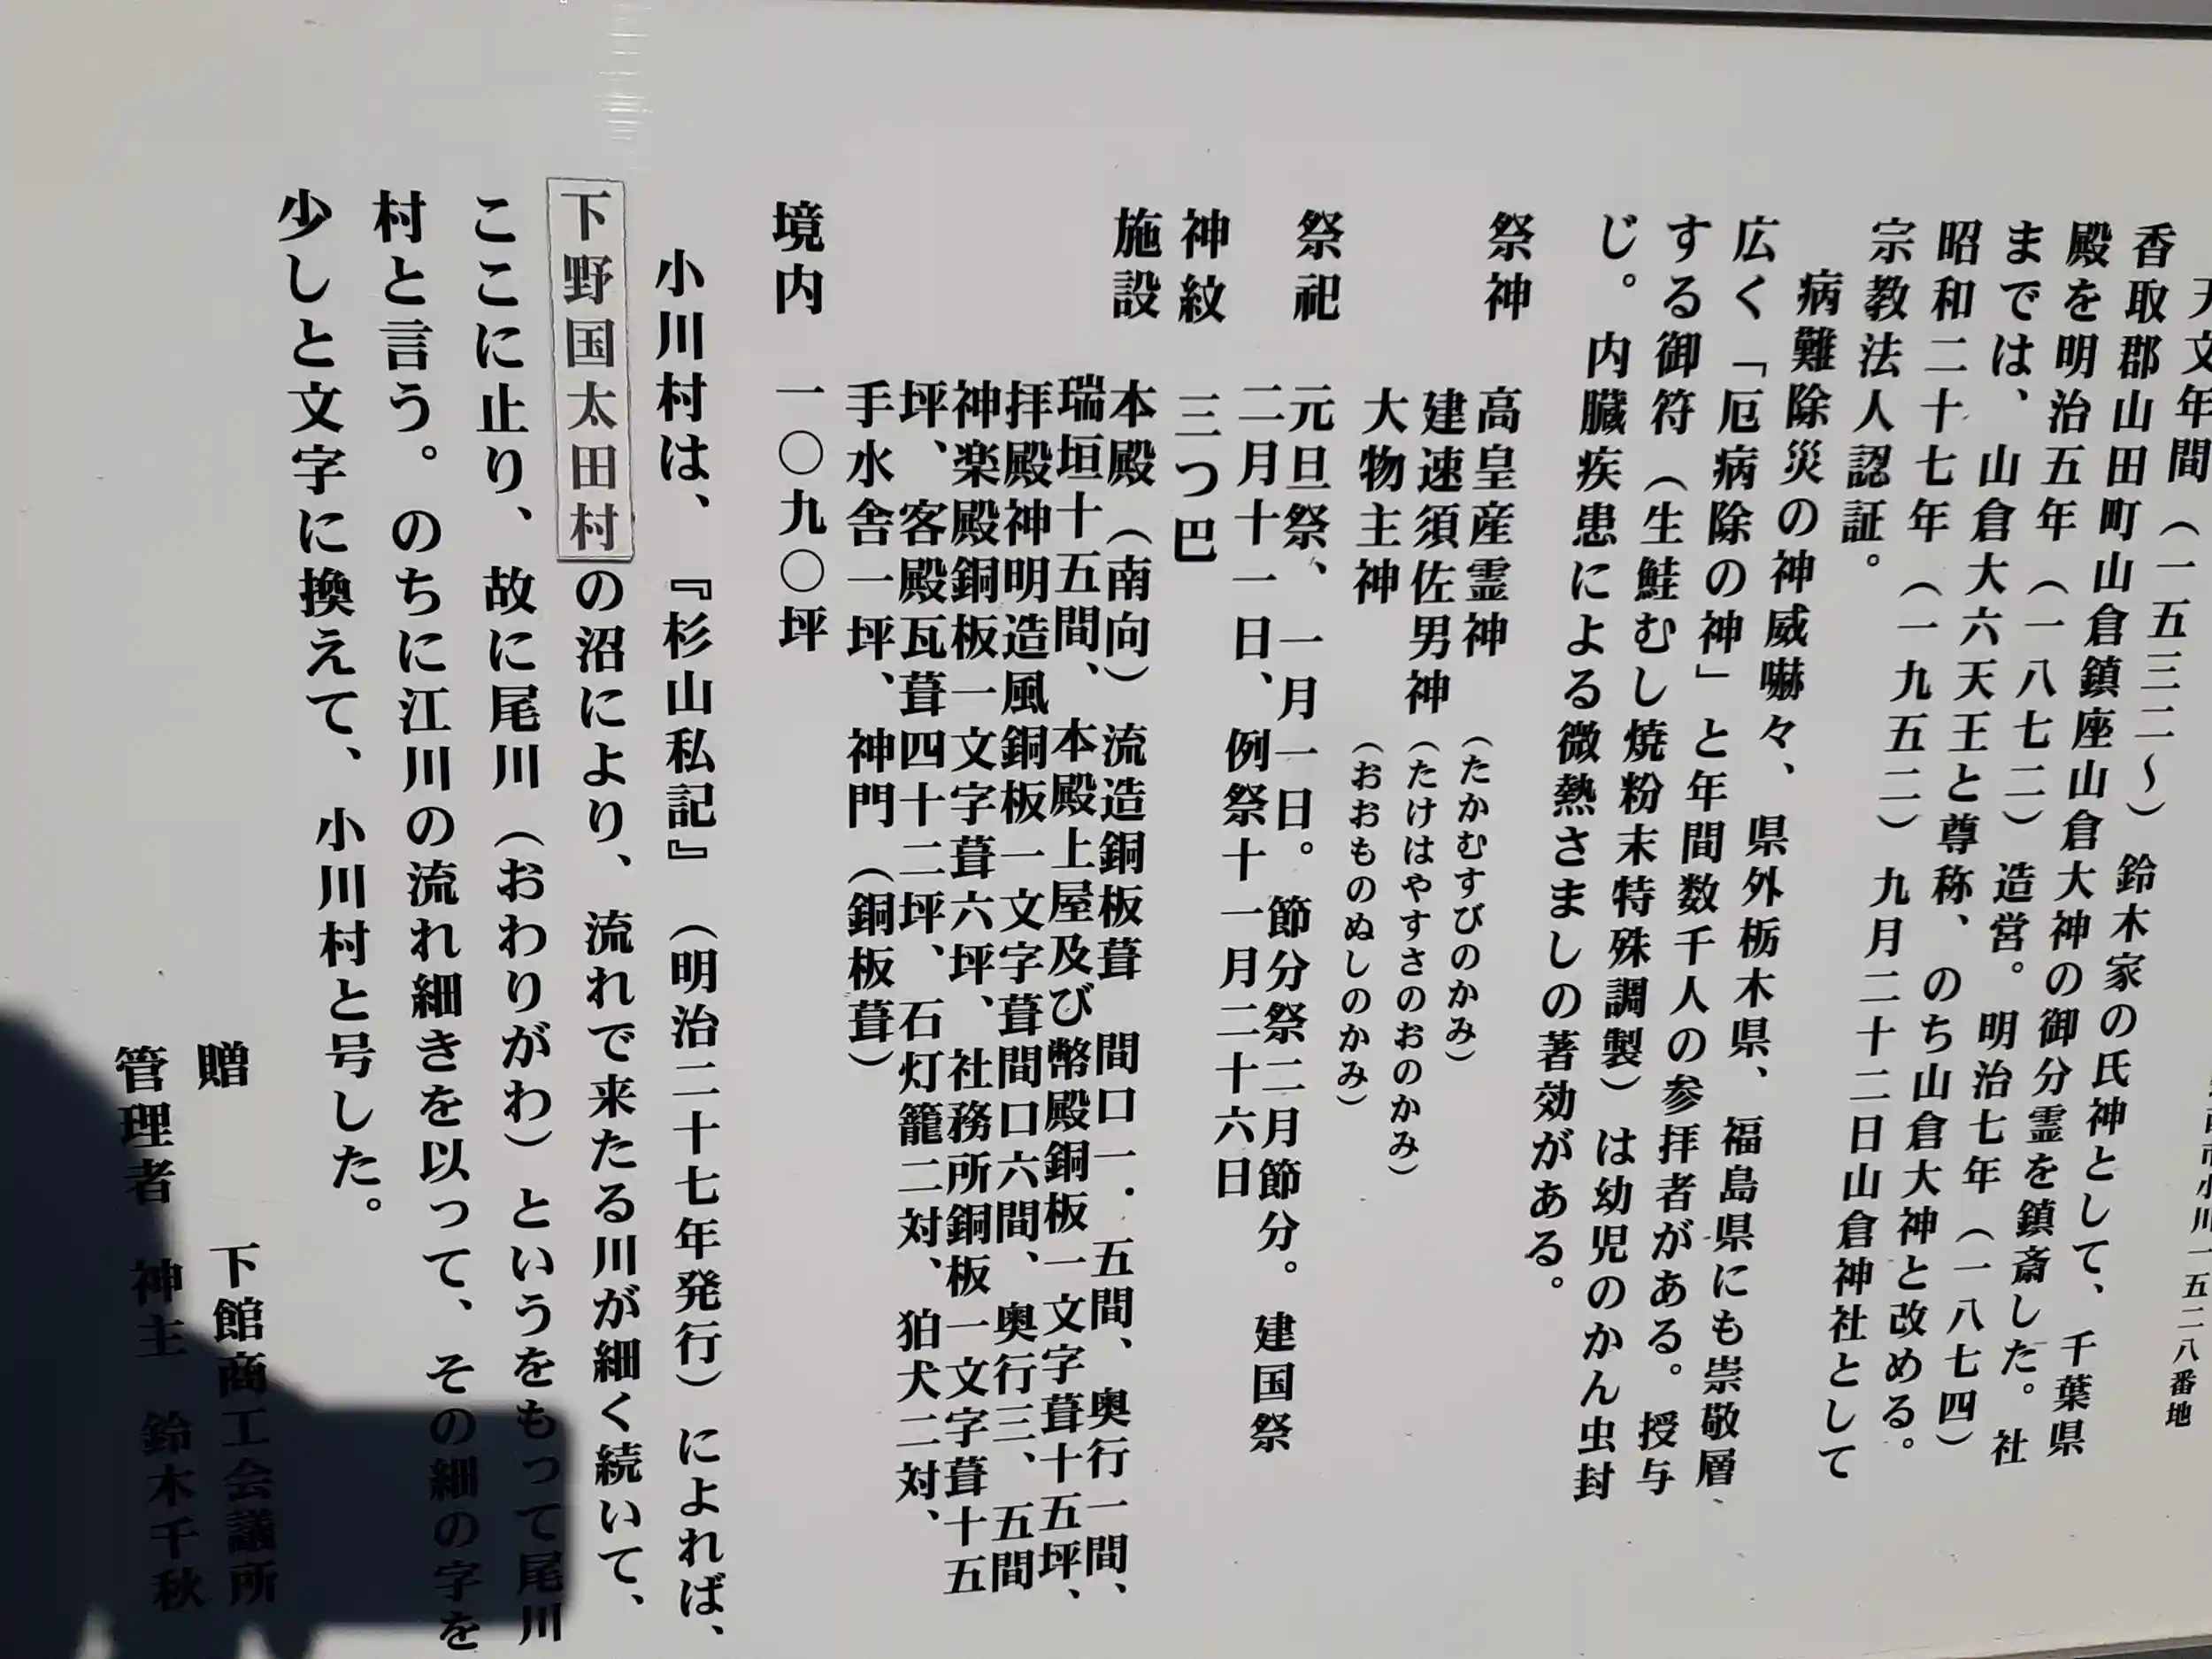 小川一五二八番地
天文年間（一五三二〜）鈴木家の氏神として、千葉県
香取郡山田町山倉鎮座山倉大神の御分霊を鎮斎した。社
殿を明治五年（一八七二）造営。明治七年（一八七四）
までは、山倉大六天王と尊称、のち山倉大神と改める。
昭和二十七年（一九五二）九月二十二日山倉神社として
宗教法人認証。
病難除災の神威嚇々、県外栃木県、福島県にも崇敬層、
広く「厄病除の神」と年間数千人の参拝者がある。授与
する御符（生鮭むし焼粉末特殊調製）は幼児のかん虫封
じ。内臓疾患による微熱さましの著効がある。
祭神 高皇産霊神（たかむすびのかみ）
建速須佐男神（たけはやすさのおのかみ）
大物主神（おおものぬしのかみ）
祭祀 元旦祭、一月一日。節分祭二月節分。建国祭
二月十一日、例祭十一月二十六日
神紋 三つ巴
施設 本殿（南向）流造銅板葺 間口一．五間、奥行一間、
瑞垣十五間、本殿上屋及び幣殿銅板一文字葺十五坪、
拝殿神明造風銅板一文字葺間口六間、奥行三、五間
神楽殿銅板一文字葺六坪、社務所銅板一文字葺十五
坪、客殿瓦葺四十二坪、石灯籠二対、狛犬二対、
手水舎一坪、神門（銅板葺）
境内 一〇九〇坪
小川村は、『杉山私記』（明治二十七年発行）によれば、
下野国太田村の沼により、流れで来たる川が細く続いて、
ここに止り、故に尾川（おわりがわ）というをもって尾川
村と言う。のちに江川の流れ細きを以って、その細の字を
少しと文字に換えて、小川村と号した。
贈 下館商工会議所
管理者 神主 鈴木千秋